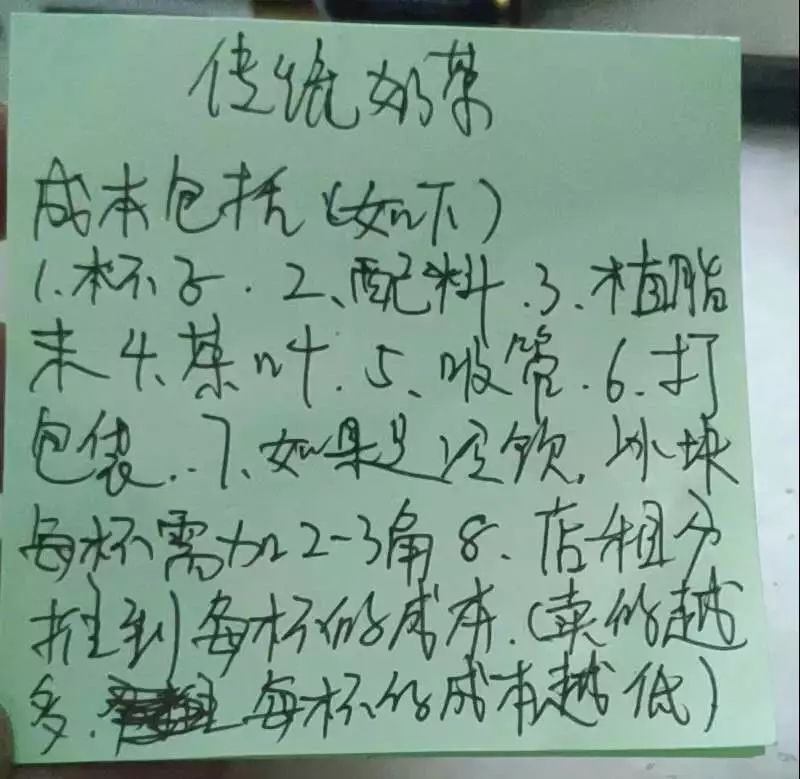 传统奶茶
成本包括(如下)
1.杯子.2、配料.3、植脂
末4、茶叶.5、吸管.6、打
包袋..7、如果是冷饮.冰块
每杯需加2-3角8、店租分
摊到每杯的成本.(卖的越
多.每杯的成本越低)